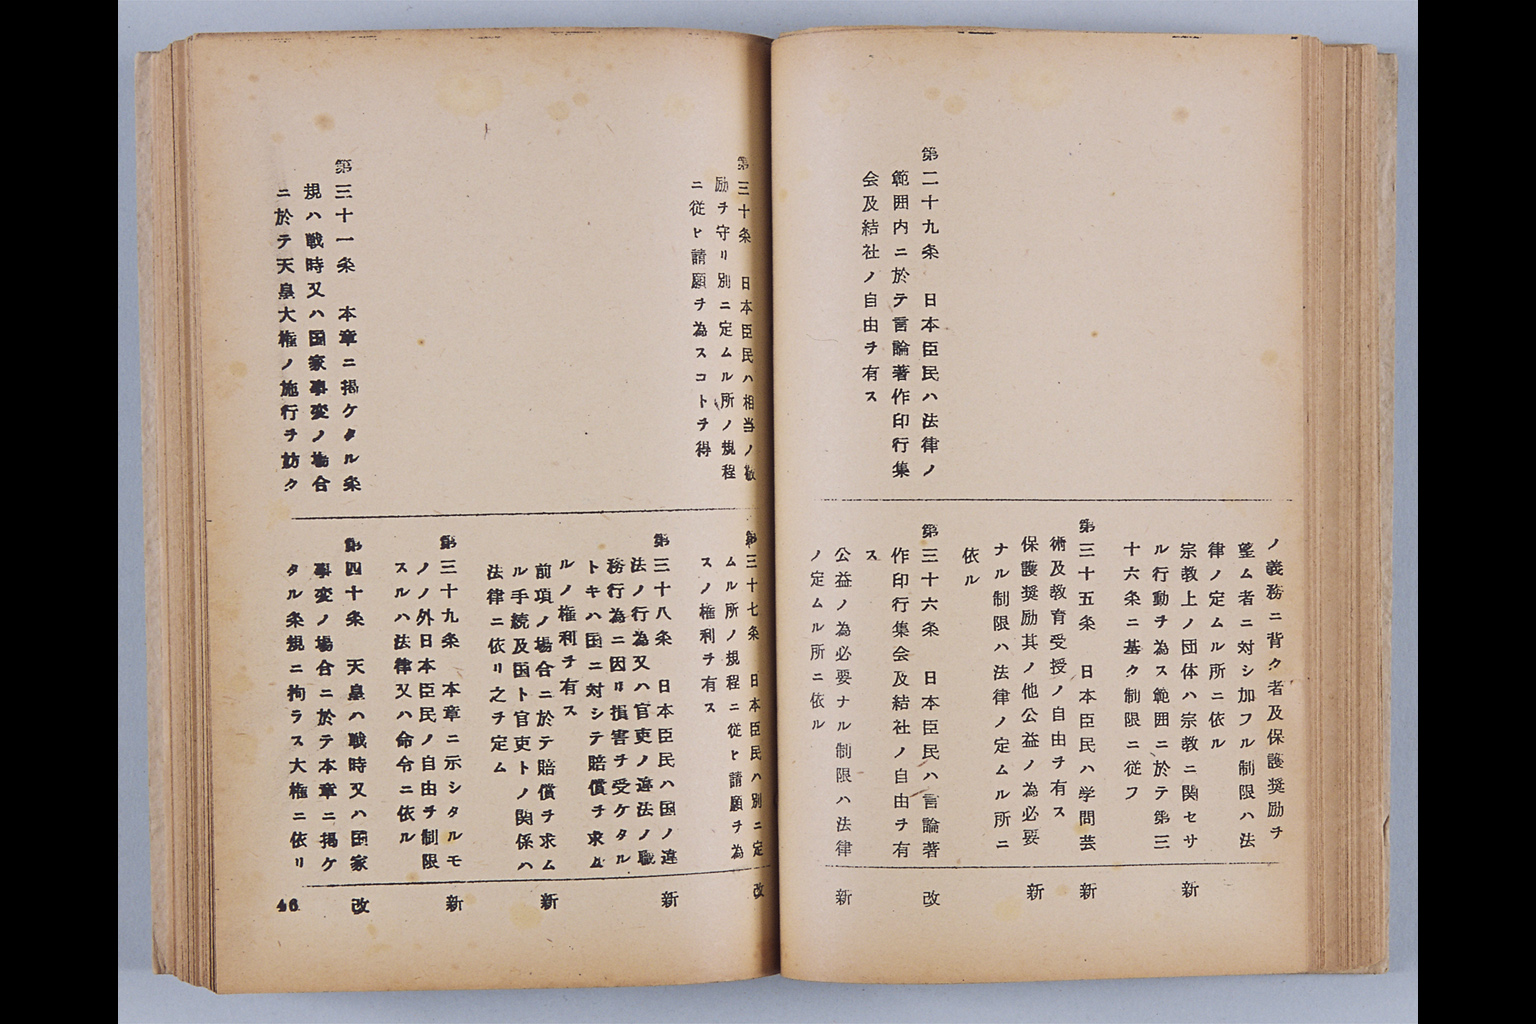 第二十九条　日本臣民ハ法律ノ
範囲内ニ於テ言論著作印行集
会及結社ノ自由ヲ有ス
ノ義務ニ背ク者及保護奨励ヲ
望ム者ニ対シ加フル制限ハ法
律ノ定ムル所ニ依ル
宗教上ノ団体ハ宗教ニ関セサ
ル行動ヲ為ス範囲ニ於テ第三
十六条ニ基ク制限ニ従フ
第三十五条　日本臣民ハ学問芸
術及教育受授ノ自由ヲ有ス
保護奨励其ノ他公益ノ為必要
ナル制限ハ法律ノ定ムル所ニ
依ル
第三十六条　日本臣民ハ言論著
作印行集会及結社ノ自由ヲ有
ス
公益ノ為必要ナル制限ハ法律
ノ定ムル所ニ依ル
新
新
新
改
新
第三十条　日本臣民ハ相当ノ敬
励ヲ守リ別ニ定ムル所ノ規程
ニ従ヒ請願ヲ為スコトヲ得
第三十一条　本章ニ掲ケタル条
規ハ戦時又ハ国家事変ノ場合
ニ於テ天皇大権ノ施行ヲ妨ク
第三十七条　日本臣民ハ別ニ定
ムル所ノ規程ニ従ヒ請願ヲ為
スノ権利ヲ有ス
第三十八条　日本臣民ハ国ノ違
法ノ行為又ハ官吏ノ違法ノ職
務行為ニ因リ損害ヲ受ケタル
トキハ国ニ対シテ賠償ヲ求ム
ルノ権利ヲ有ス
前項ノ場合ニ於テ賠償ヲ求ム
ル手続及国ト官吏トノ関係ハ
法律ニ依リ之ヲ定ム
第三十九条　本章ニ示シタルモ
ノノ外日本臣民ノ自由ヲ制限
スルハ法律又ハ命令ニ依ル
第四十条　天皇ハ戦時又ハ国家
事変ノ場合ニ於テ本章ニ掲ケ
タル条規ニ拘ラス大権ニ依リ
改
新
新
新
改
46